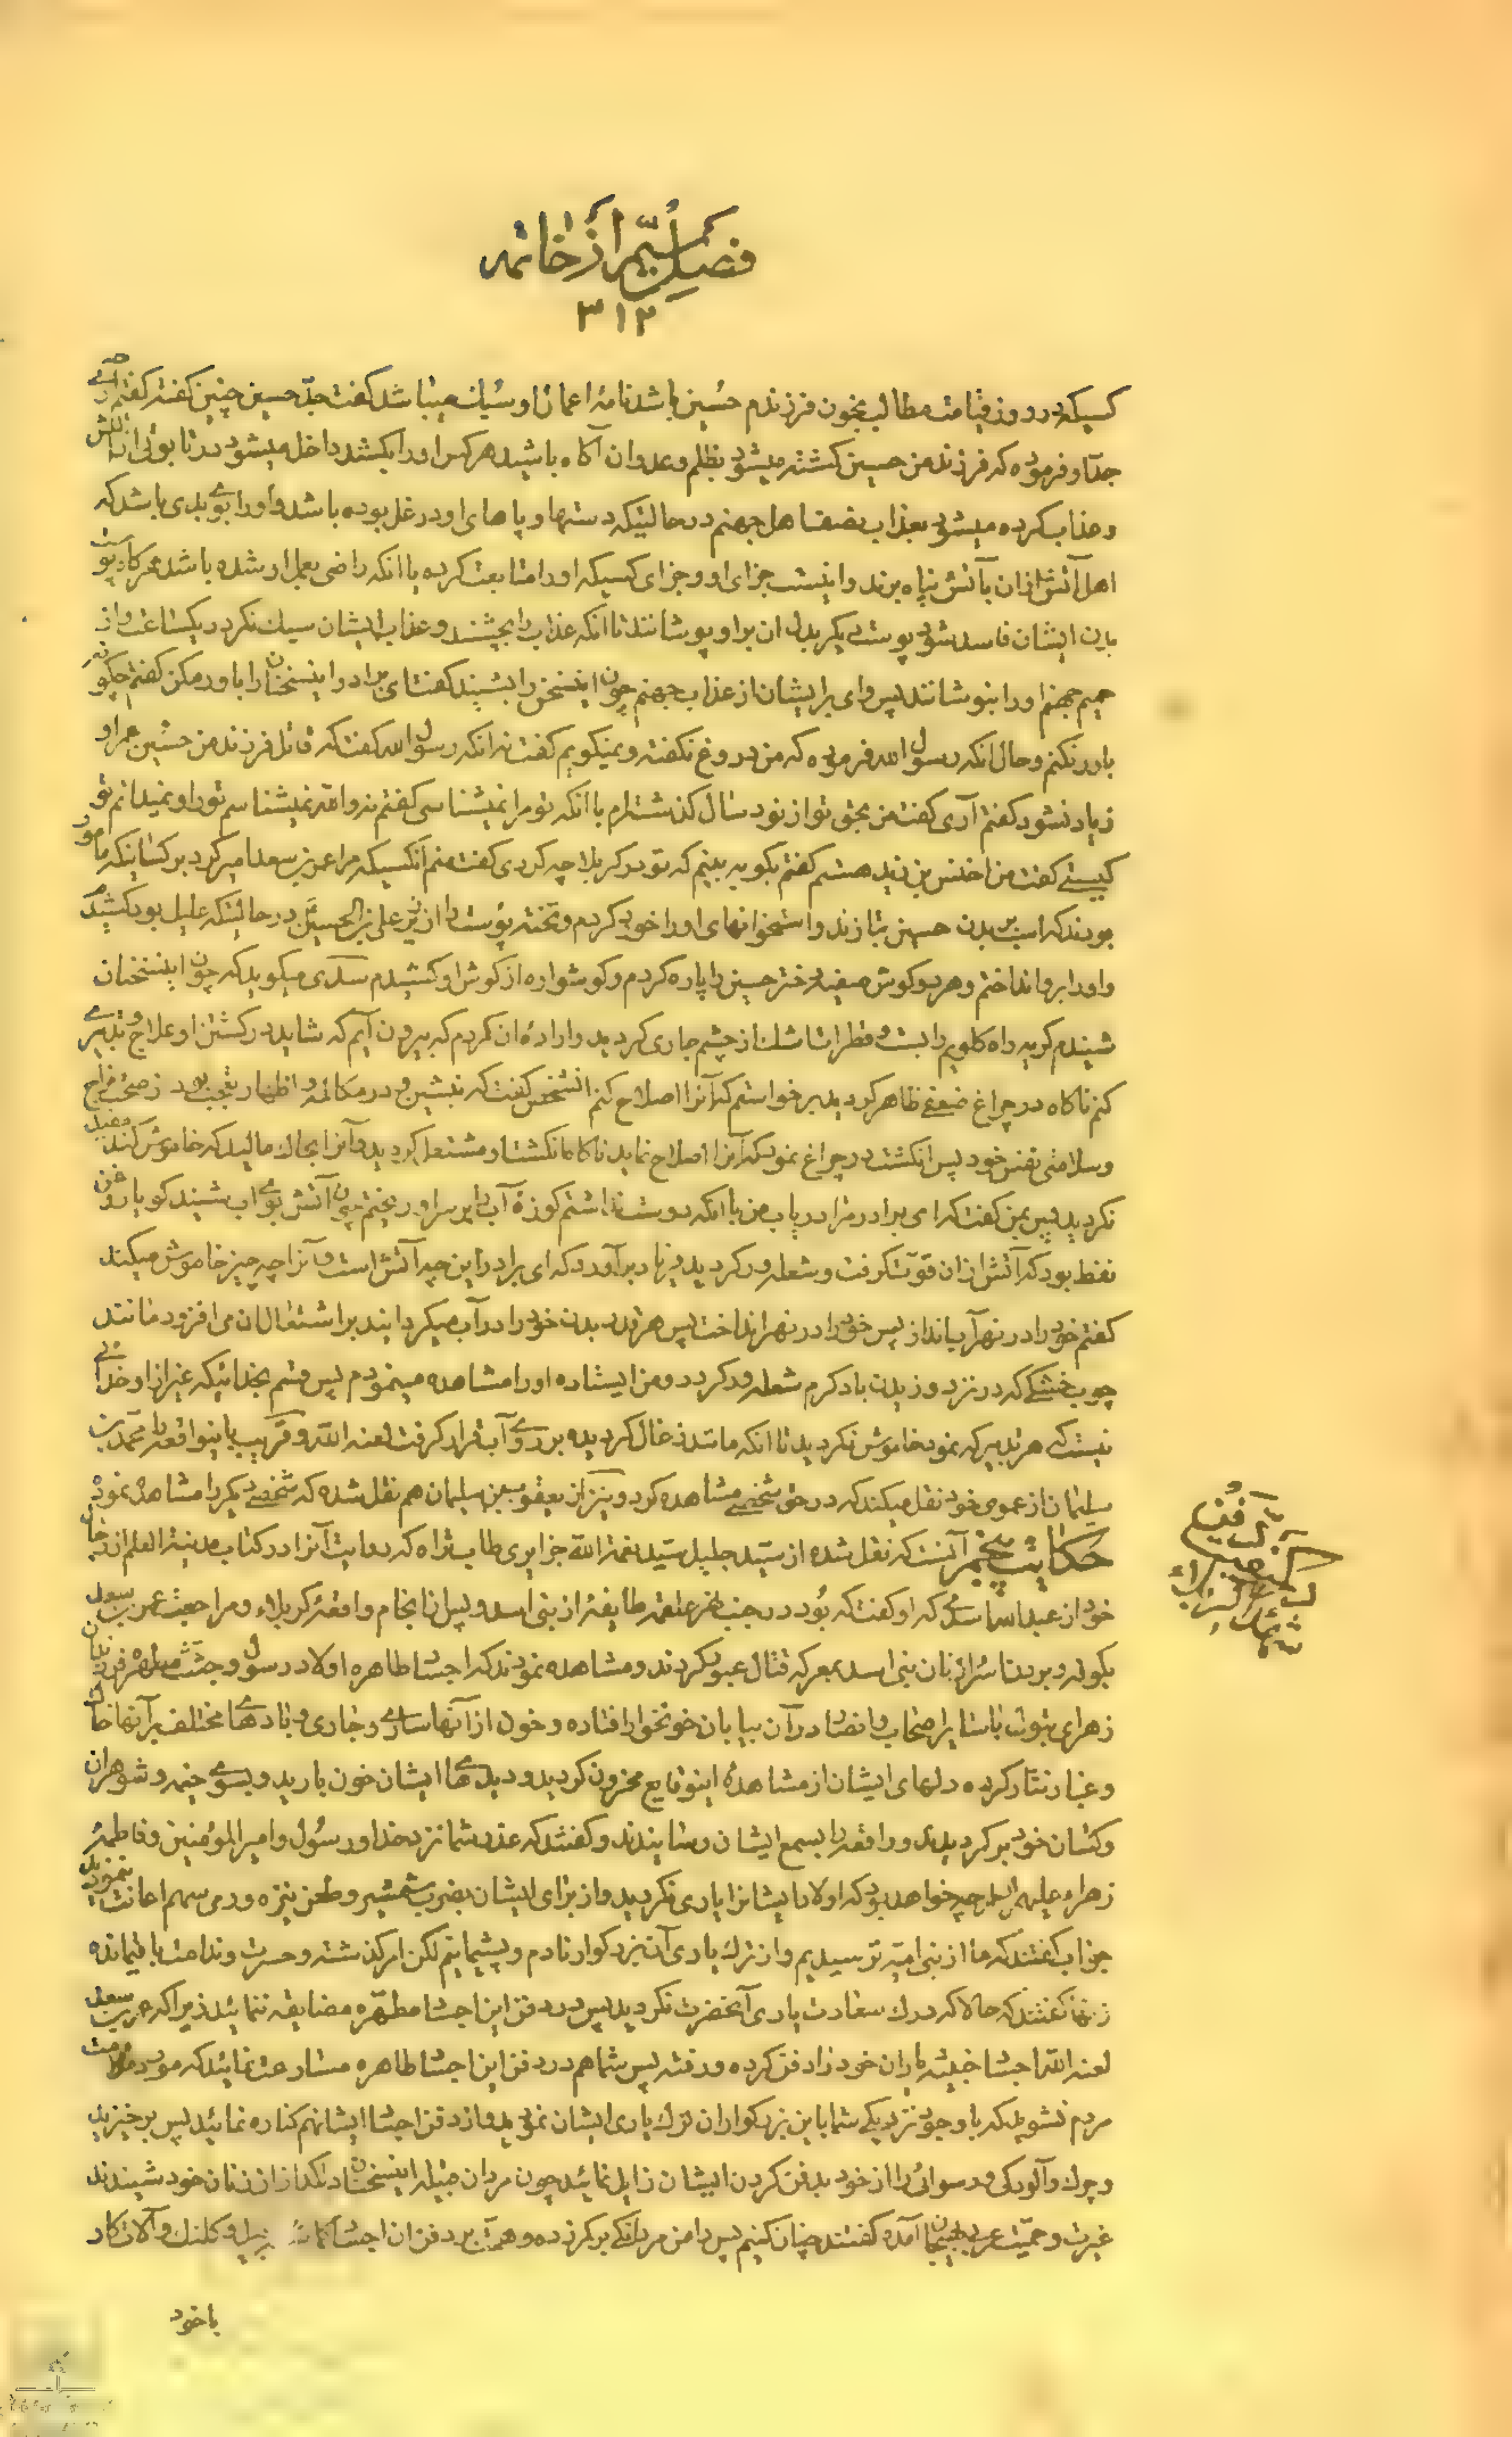 فصل سیم از خاتمه
۳۱۲
کسیکه در روز قیامت مطالب بخون فرزندم حسین باشد نامهٔ اعمال او سبک میباشد گفت جدّ حسین چنین گفته گفتم آری
جدّ او فرموده که فرزند من حسین کشته میشود بظلم و عدوان آگاه باشید هر کس او را بکشد داخل میشود در تابوتی از آتش
و عذاب کرده میشود بعذاب نصف اهل جهنم در حالتیکه دستها و پاهای او در غل بوده باشد و او را بوی بدی باشد که
اهل آتش از ان بآتش پناه برند و اینست جزای او و جزای کسیکه او را متابعت کرده یا انکه راضی بعمل او شده باشد هر گاه پوست
بدن ایشان فاسد شود پوست دیگر بدل ان بر او پوشانند تا انکه عذاب را بچشند و عذاب ایشان سبک نگردد یکساعت و از
حمیم جهنم او را بنوشانند پس وای بر ایشان از عذاب جهنم چون اینسخن را بشنید گفت ای برادر اینسخنان را باور مکن گفتم چگونه
باور نکنم و حال انکه رسول الله فرموده که من دروغ نگفته و نمیگویم گفت نه انکه رسول الله گفت که قاتل فرزند من حسین عمر او
زیاد نشود گفتم آری گفت من بحق تو از نود سال گذشته‌ام با انکه تو مرا نمیشناسی گفتم نه والله نمیشناسم تو را و نمیدانم تو
کیستی گفت من اخنس بن زید هستم گفتم بگو به بینم که تو در کربلا چه کردی گفت منم انکسیکه مرا عمر بن سعد امیر کرد بر کسانیکه مامور
بودند که اسب بر بدن حسین بتازند و استخوانهای او را خورد کردم و تخته پوست را از زیر علی بن الحسین در حالتیکه علیل بود کشیدم
و او را بر رو انداختم و هر دو گوش صفیه دختر حسین را پاره کردم و گوشواره از گوش او کشیدم سدی میگوید که چون اینسخنان
شنیدم گریه راه گلویم را بست و قطرات اشک از چشم جاری گردید و ارادهٔ ان کردم که بیرون آیم که شاید در کشتن او علاج و تدبیری
کنم ناگاه در چراغ ضعفی ظاهر گردید برخواستم که آنرا اصلاح کنم انشخص گفت که بنشین و در مکالمه و اظهار تعجب بود ز صحت مزاج
و سلامتی نفس خود پس انگشت در چراغ نمود که آنرا اصلاح نماید ناگاه انگشت او مشتعل گردید و آنرا بخاک مالید که خاموش کند مفید
نگردید پس بمن گفت که ای برادر مرا دریاب من با انکه دوست نداشتم کوزهٔ آب را بر سر او ریختم چون آتش بوی اب شنید گویا روغن
نفط بود که آتش از ان قوّت گرفت و شعله ور گردید فریاد بر آورد که ای برادر این چه آتش است و آنرا چه چیز خاموش میکند
گفتم خود را در نهر آب انداز پس خود را در نهر انداخت پس هر قدر بدن خود را در آب میگردانید بر اشتعال ان می افزود مانند
چوب خشکی که در نزد وزیدن باد گرم شعله ور گردد و من ایستاده او را مشاهده مینمودم پس قسم بخدائیکه غیر از او خدائی
نیست که هر تدبیر که نمود خاموش نگردید تا انکه مانند زغال گردیده بر روی آب قرار گرفت لعنه الله و قریب باینواقعه را محمد بن
سلیمان از عموی خود نقل میکند که در حق شخصی مشاهده کرد و نیز از یعقوب بن سلیمان هم نقل شده که شخصی دیگر را مشاهده نمود
حکایت پنجم آنست که نقل شده از سید جلیل سید نعمة الله جزایری طاب ثراه که روایت آنرا در کتاب مدینة العلم از رجال
خود از عبد الله اسدی که او گفت که بود در جنب نهر علقمه طایفهٔ از بنی اسد و پس از انجام واقعهٔ کربلاء و مراجعت عمر بن سعد
بکوفه و بردن اسرا زنان بنی اسد بمعرکه قتال عبور کردند و مشاهده نمودند که اجساد طاهره اولاد رسول و جثث مطهرهٔ فرزندان
زهرای بتول با سایر اصحاب و انصار در آن بیابان خونخوار افتاده و خون از آنها ساری و جاری و بادهای مختلف بر آنها خاک
و غبار نثار کرده دلهای ایشان از مشاهدهٔ اینوقایع محزون گردید و دیده های ایشان خون بارید و بسوی خیمه و شوهران
و کسان خود بر گردیدند و واقعه را بسمع ایشان رسانیدند و گفتند که عذر شما نزد خدا و رسول و امیر المؤمنین و فاطمهٔ
زهراء علیهم السلام چه خواهد بود که اولاد ایشانرا یاری نکردید و از برای ایشان بضرب شمشیر و طعن نیزه و رمی سهم اعانت ننمودید
جواب گفتند که ما از بنی امیه ترسیدیم و از ترک یاری آن بزرگوار نادم و پشیمانیم لکن امر گذشته و حسرت و ندامت باقیمانده
زنها گفتند که حالا که درک سعادت یاری آنحضرت نکردید پس در دفن این اجساد مطهّره مضایقه ننمائید زیرا که عمر بن سعد
لعنه الله اجساد خبیثه یاران خود را دفن کرده و رفته پس شما هم در دفن این اجساد طاهره مسارعت نمائید که مورد ملامت
مردم نشوید که با وجود نزدیکی شما باین بزرگواران ترک یاری ایشان نمودید و از دفن اجساد ایشانهم کناره نمائید پس برخیزید
و چرک و آلودگی و رسوائی را از خود بدفن کردن ایشان زایل نمائید چون مردان قبیله اینسخنان دلگداز از زنان خود شنیدند
غیرت و حمیّت عرب بهیجان آمده گفتند چنان کنیم پس دامن مردانگی بر کمر زده و همت بر دفن ان اجساد گماشته بیل و کلنگ و آلات کار
با خود